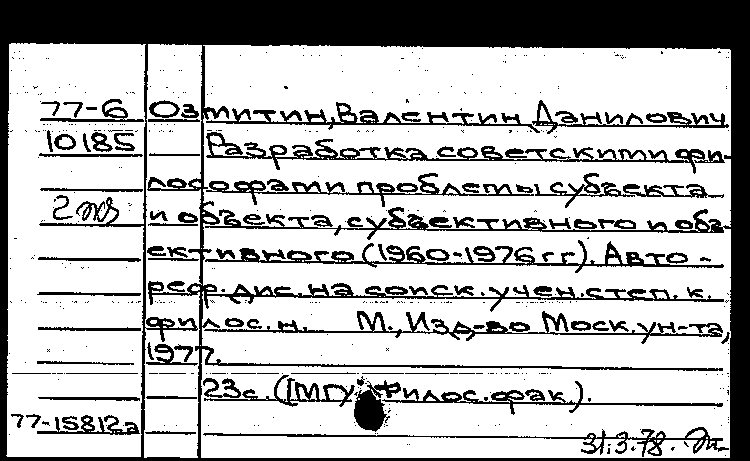 77-6 Озмитин, Валентин Данилович
10185 Разработка советскими фи-
лософами проблемы субъекта
2 экз и объекта, субъективного и объ-
ективного (1960-1976 гг). Авто-
реф. дис. на соиск. учен. степ. к.
филос. н. М., Изд-во Моск. ун-та,
1977.
23с. (МГУ Филос. фак.).
77-15812а
31.3.78.